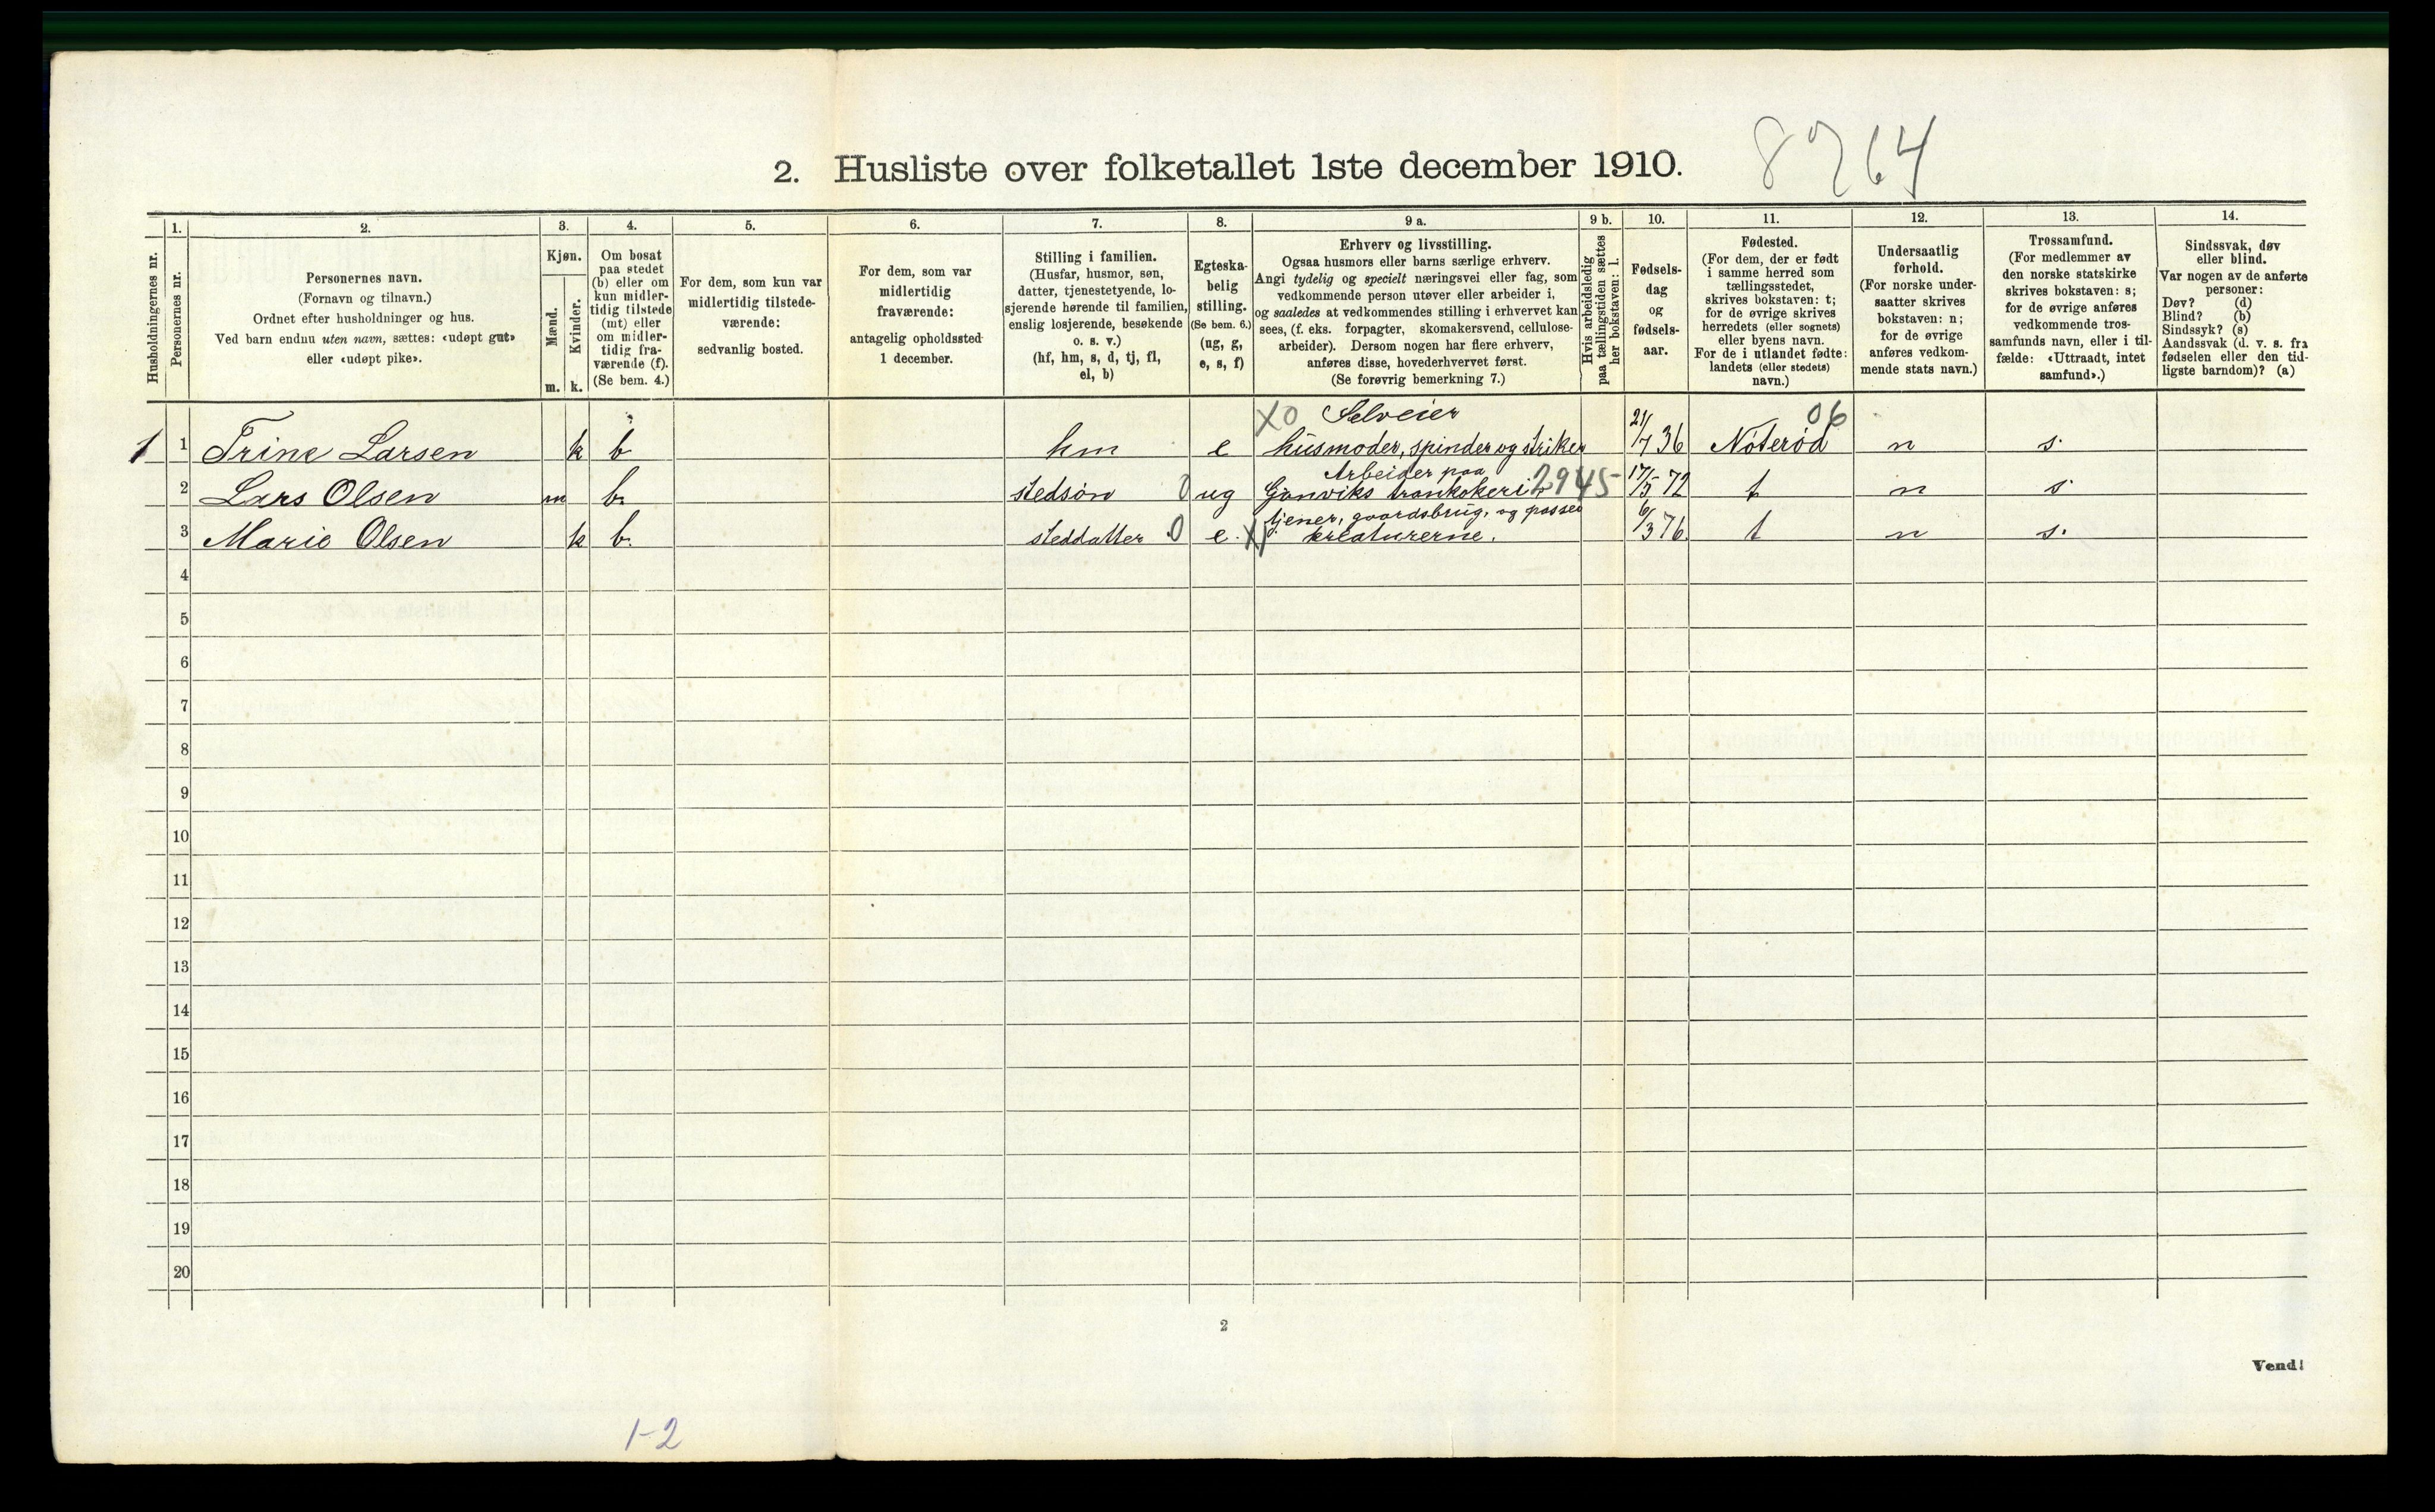 2. Husliste over folketallet 1ste december 1910.
8764
Husholdningernes nr.
1.
Personernes nr.
2.
Personernes navn.
(Fornavn og tilnavn.)
Ordnet efter husholdninger og hus.
Ved barn endnu uten navn, sættes: «udøpt gut»
eller «udøpt pike».
3.
Kjøn.
Mænd.
Kvinder.
m. k.
4.
Om bosat
paa stedet
(b) eller om
kun midler-
tidig tilstede
(mt) eller
om midler-
tidig fra-
værende (f).
(Se bem. 4.)
5.
For dem, som kun var
midlertidig tilstede-
værende:
sedvanlig bosted.
6.
For dem, som var
midlertidig
fraværende:
antagelig opholdssted
1 december.
7.
Stilling i familien.
(Husfar, husmor, søn,
datter, tjenestetyende, lo-
sjerende hørende til familien,
enslig losjerende, besøkende
o. s. v.)
(hf, hm, s, d, tj, fl,
el, b)
8.
Egteska-
belig
stilling.
(Se bem. 6.)
(ug, g,
e, s, f)
9 a.
Erhverv og livsstilling.
Ogsaa husmors eller barns særlige erhverv.
Angi tydelig og specielt næringsvei eller fag, som
vedkommende person utøver eller arbeider i,
og saaledes at vedkommendes stilling i erhvervet kan
sees, (f. eks. forpagter, skomakersvend, cellulose-
arbeider). Dersom nogen har flere erhverv,
anføres disse, hovederhvervet først.
(Se forøvrig bemerkning 7.)
9 b.
Hvis arbeidsledig
paa tællingstiden sættes
her bokstaven: l.
10.
Fødsels-
dag
og
fødsels-
aar.
11.
Fødested.
(For dem, der er født
i samme herred som
tællingsstedet,
skrives bokstaven: t;
for de øvrige skrives
herredets (eller sognets)
eller byens navn.
For de i utlandet fødte:
landets (eller stedets)
navn.)
12.
Undersaatlig
forhold.
(For norske under-
saatter skrives
bokstaven: n;
for de øvrige
anføres vedkom-
mende stats navn.)
13.
Trossamfund.
(For medlemmer av
den norske statskirke
skrives bokstaven: s;
for de øvrige anføres
vedkommende tros-
samfunds navn, eller i til-
fælde: «Uttraadt, intet
samfund».)
14.
Sindssvak, døv
eller blind.
Var nogen av de anførte
personer:
Døv? (d)
Blind? (b)
Sindssyk? (s)
Aandssvak (d. v. s. fra
fødselen eller den tid-
ligste barndom)? (a)
X0 Selveier 06
1 1 Trine Larsen k b hm e husmoder, spinder og striker 21/7 36 Nøterød n s.
Arbeider paa
2 Lars Olsen m b. stedsøn 0 ug trankokeri 2945 17/5 72 t n s
tjener, gaardsbrug, og passer
3 Marie Olsen k b. steddatter 0 e. X kreaturerne. 6/3 76. t n s.
4
5
6
7
8
9
10
11
12
13
14
15
16
17
18
19
20
2
Vend!
1-2